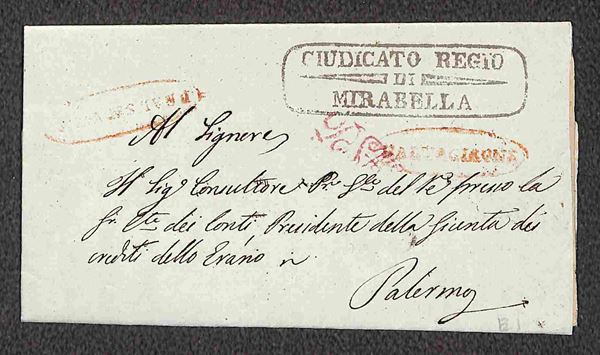 GIUDICATO REGIO
DI
MIRABELLA
CALTAGIRONE
Al Signore
Il Sig.r Consultore Pr. Gle del Re presso la
Gr. Cte dei Conti, Presidente della Giunta dei
crediti dello Erario
Palermo